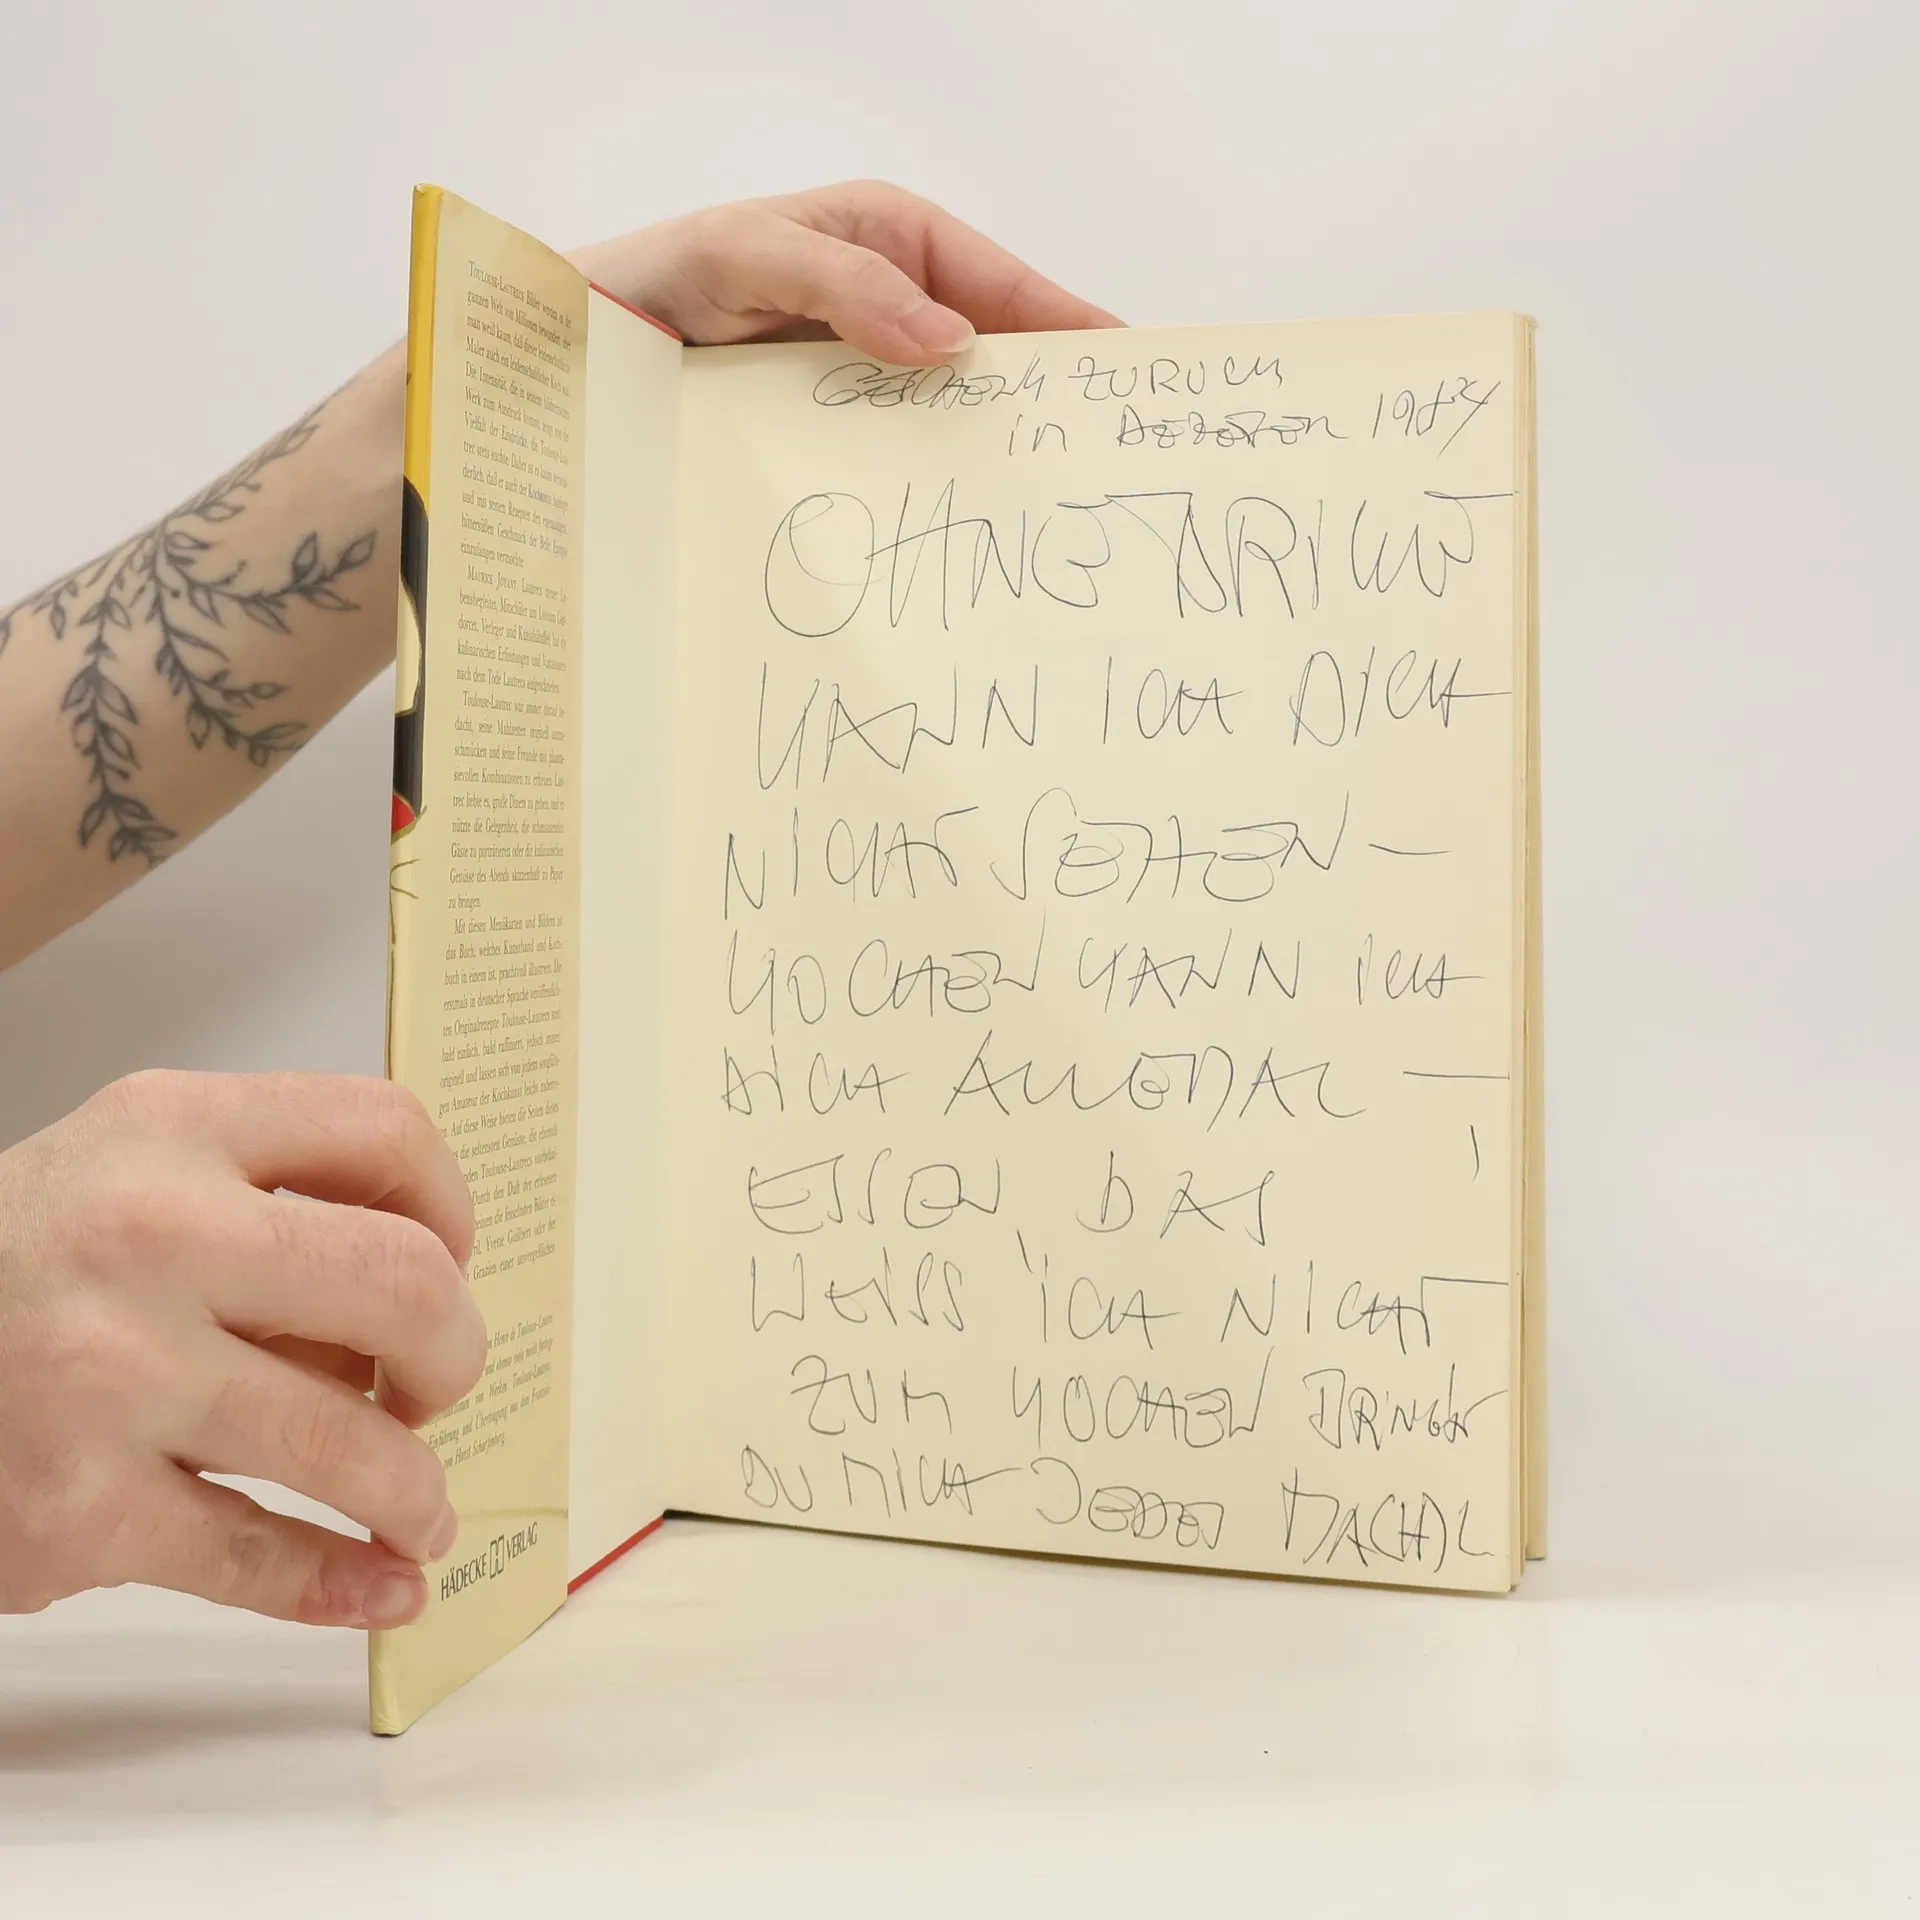 TOULOUSE-LAUTRECS Bilder werden in der
ganzen Welt von Millionen bewundert, aber
man weiß kaum, daß dieser leidenschaftliche
Maler auch ein leidenschaftlicher Koch war.
Die Intensität, die in seinem bildnerischen
Werk zum Ausdruck kommt, zeugt von der
Vielfalt der Eindrücke, die Toulouse-Lau-
trec stets suchte. Daher ist es kaum verwun-
derlich, daß er auch der Kochkunst huldigte
und mit seinen Rezepten den eigenartigen,
bittersüßen Geschmack der Belle Epoque
einzufangen vermochte.
MAURICE JOYANT, Lautrecs treuer Le-
bensbegleiter, Mitschüler am Lyceum Con-
dorcet, Verleger und Kunsthändler, hat die
kulinarischen Erfindungen und Variationen
nach dem Tode Lautrecs aufgeschrieben.
Toulouse-Lautrec war immer darauf be-
dacht, seine Mahlzeiten originell auszu-
schmücken und seine Freunde mit phanta-
sievollen Kombinationen zu erfreuen. Lau-
trec liebte es, große Diners zu geben, und er
nützte die Gelegenheit, die schmausenden
Gäste zu porträtieren oder die kulinarischen
Genüsse des Abends skizzenhaft zu Papier
zu bringen.
Mit diesen Menükarten und Bildern ist
das Buch, welches Kunstband und Koch-
buch in einem ist, prachtvoll illustriert. Die
erstmals in deutscher Sprache veröffentlich-
ten Originalrezepte Toulouse-Lautrecs sind
bald einfach, bald raffiniert, jedoch immer
originell und lassen sich von jedem
gen Amateur der Kochkunst leicht
Auf diese Weise bieten die Seiten dieses
die seltensten Genüsse, die ehemals
Toulouse-Lautrecs
Durch den Duft der erlesenen
die fesselnden Bilder
Yvette Guilbert oder der
Grazien einer unvergeßlichen
Henri de Toulouse-Lautrec
und
von Werken Toulouse-Lautrecs.
Einführung und Übertragung aus dem Französi-
von Horst Scharfenberg.
HÄDECKE VERLAG
ZURÜCK
in 1984
OHNE BRILLE
KANN ICH DICH
NICHT SEHEN –
KOCHEN KANN ICH
DICH ALLEMAL –
ESSEN, DAS
WEISS ICH NICHT !
ZUM KOCHEN BRINGST
DU MICH JEDES MA(H)L